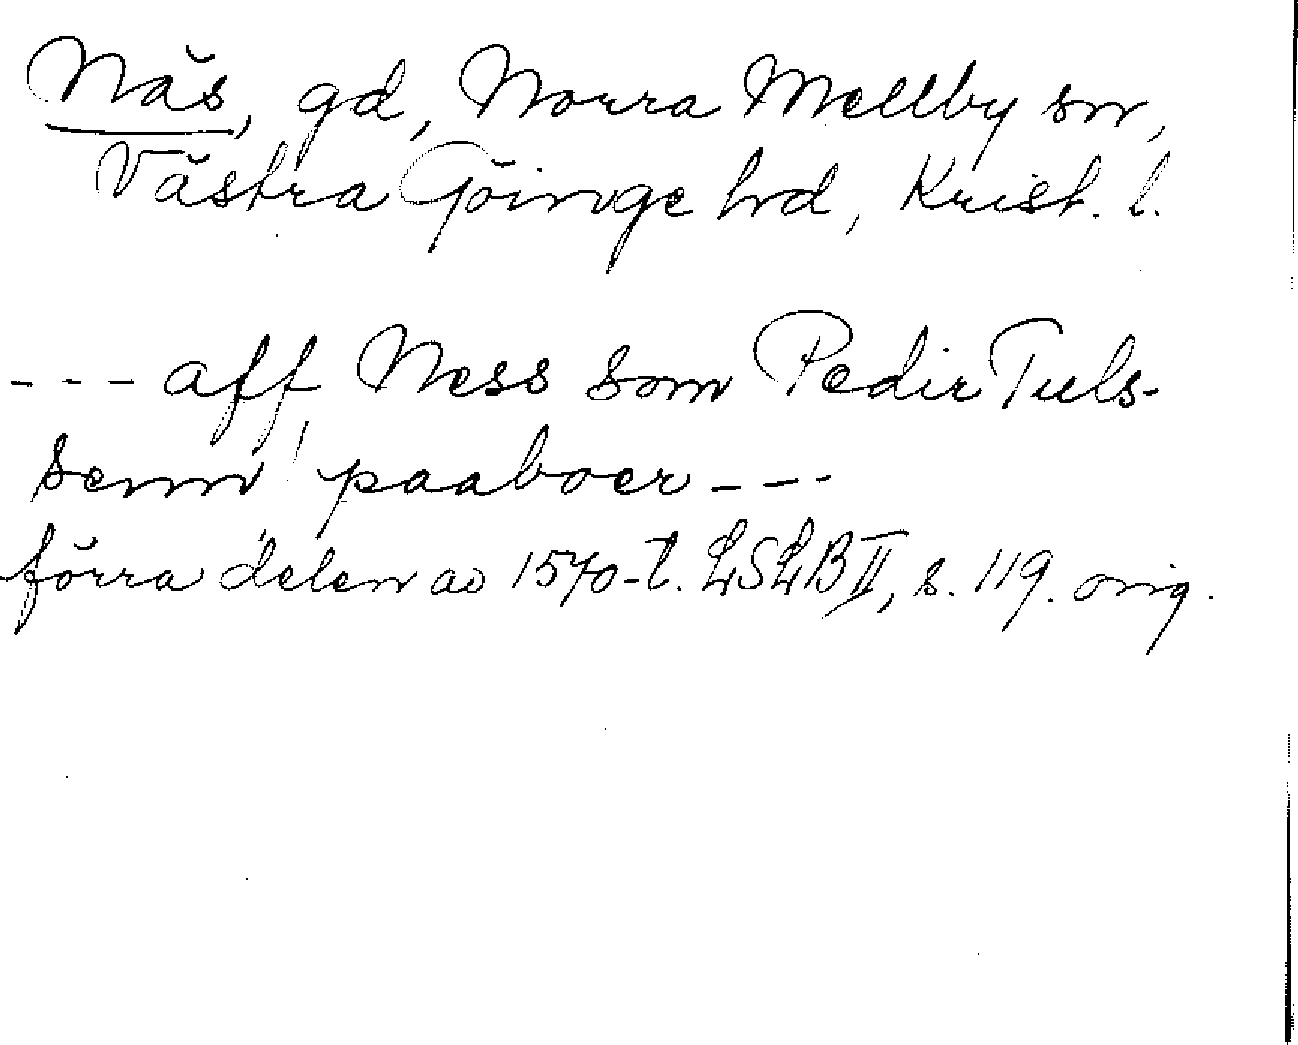 Näs, gd, Norra Mellby sn,
Västra Göinge hrd, Krist. l.
--- aff Ness som Pedir Tuls-
senn paaboer ---
förra delen av 1570-t. LSLB II, s. 119. orig.